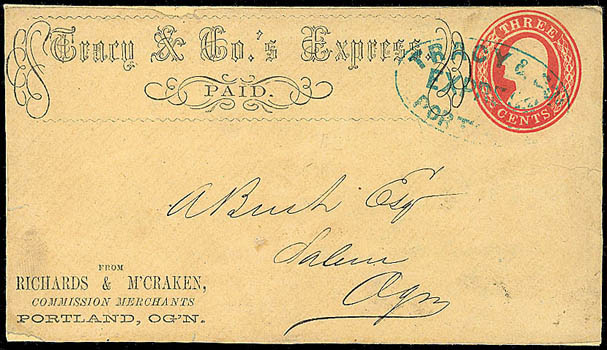 Tracy & Co.'s Express.
PAID.
THREE
CENTS
TRACY & CO
EXPRESS
PORT
A Bush Esq
Salem
Ogn
FROM
RICHARDS & M'CRAKEN,
COMMISSION MERCHANTS
PORTLAND, OG'N.